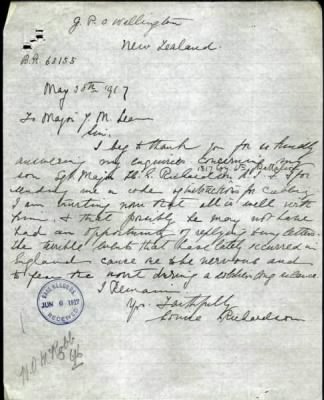 G.P.O Wellington
New Zealand.
B.R. 63155
May 30th 1917
To Major J. M. Lean
Sir.
I beg to thank you for so kindly
answering my enquiries concerning my
son Sgt Major Richardson & for
sending me a code of instructions for cabling
I am trusting now that all is well with
him. & that possibly he may not have
had an opportunity of replying to my letters.
the terrible events that have lately occurred in
England cause me to be nervous and
to fear the worst during a long silence.
I Remain
Yrs. Faithfully
Louise Richardson
BASE RECORDS
JUN 6 1917
RECEIVED